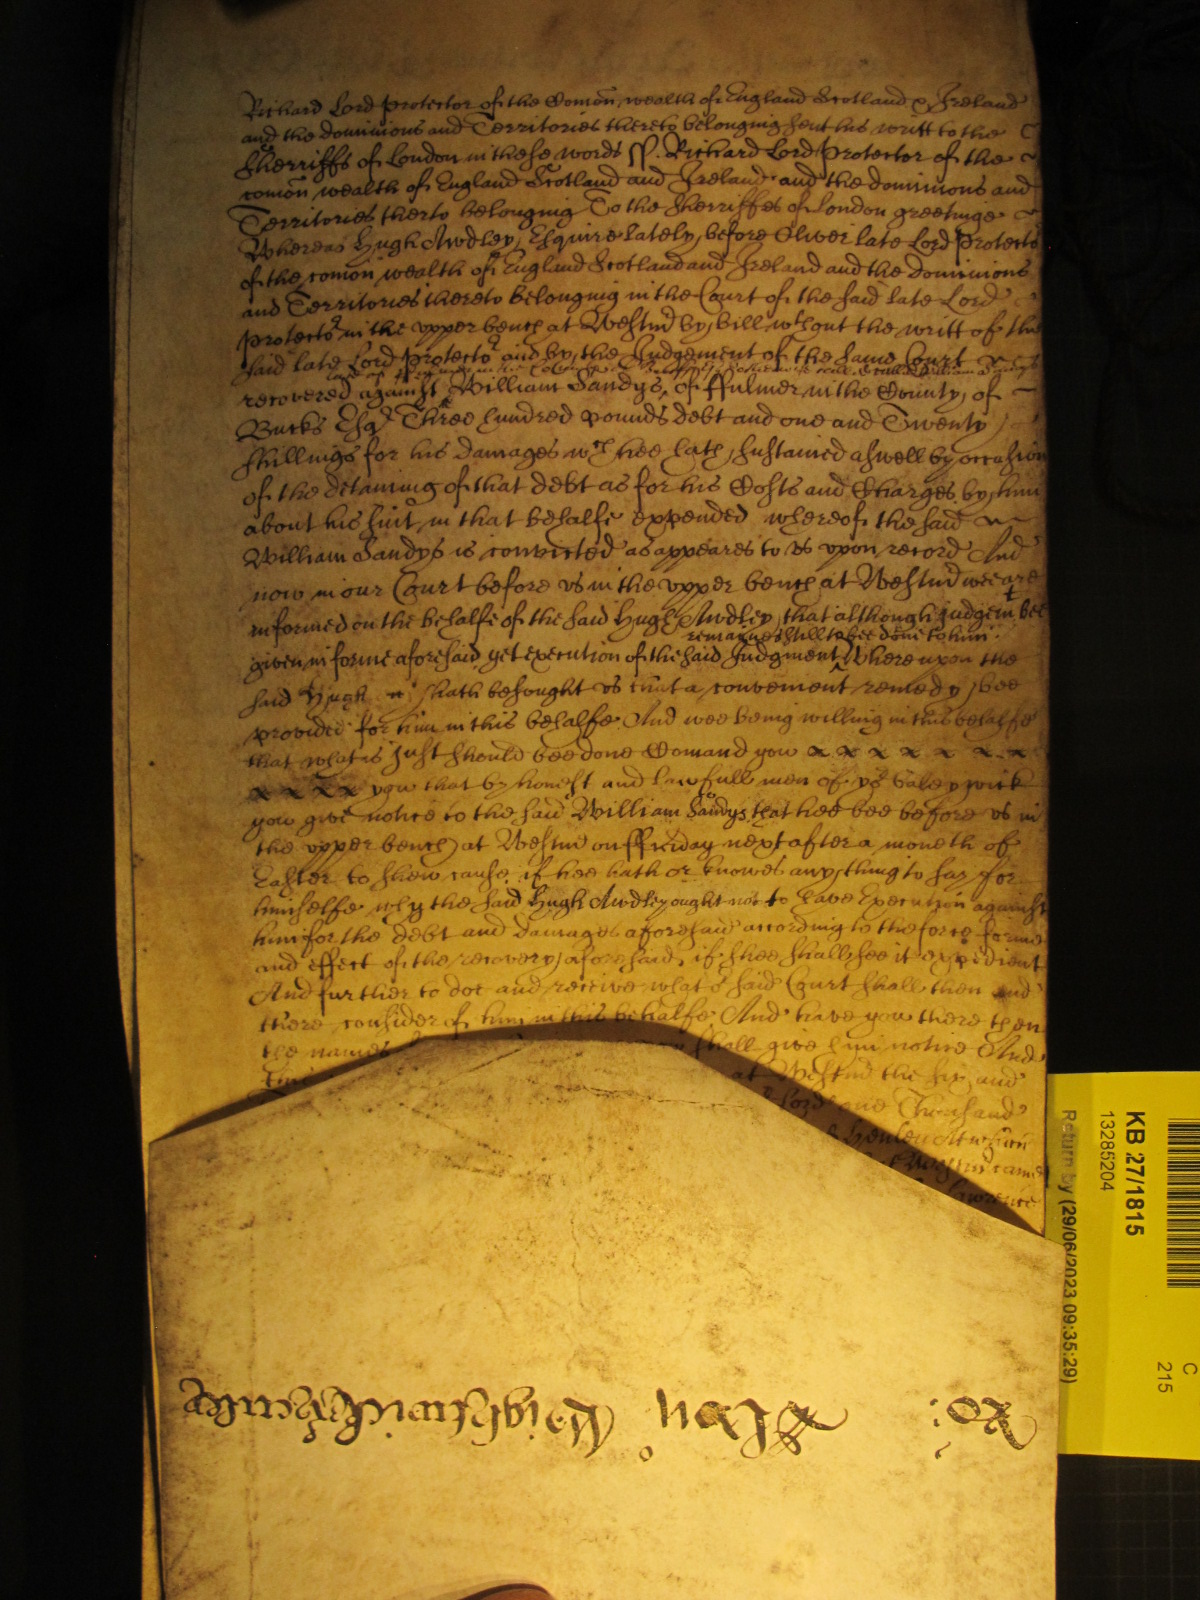 Richard Lord Protector of the Comon wealth of England Scotland & Ireland
and the dominions and Territories thereto belonging sent his writt to the
Sherriffs of London in these words ss. Richard Lord Protector of the
comon wealth of England Scotland and Ireland and the dominions and
Territories therto belonging To the Sherriffes of London greetinge
Whereas Hugh Awdley Esquire lately before Oliver late Lord Protector
of the comon wealth of England Scotland and Ireland and the dominions
and Territories thereto belonging in the Court of the said late Lord
Protector in the upper bench at Westmr by bill wthout the writt of the
said late Lord Protector and by the Judgement of the same Court
recovered against William Sandys, of ffulmer in the County of
Bucks Esqr Three hundred pounds debt and one and Twenty
shillings for his damages wch hee hath sustained aswell by occasion
of the detaining of that debt as for his Costs and Charges by him
about his suit in that behalfe expended whereof the said
William Sandys is convicted as appeares to us upon record And
now in our Court before us in the upper bench at Westmr wee are
informed on the behalfe of the said Hugh Awdley that although judgemt bee
remaines still to bee done to him
given in forme aforesaid yet execution of the said Judgment Whereupon the
said Hugh hath besought us that a convenient remedy bee
provided for him in this behalfe And wee being willing in this behalfe
that what is just should bee done Comand you x x x x x x x
x x x x you that by honest and lawfull men of yor baleywick
you give notice to the said William Sandys that hee bee before us in
the upper bench at Westmr on ffriday next after a moneth of
Easter to shew cause if hee hath or knowes any thing to say for
himselfe why the said Hugh Awdley ought not to have Execution against
him for the debt and damages aforesaid according to the force forme
and effect of the recovery aforesaid, if shee shall see it expedient
And further to doe and receive what ye said Court shall then and
there consider of him in this behalfe And have you there then
the names shall give him notice And
at Westmr the six and
Lord one Thousand
Henley At which
at Westmr came
Lawrence
Ro:
KB 27/1815
13285204
Return by (29/06/2023 09:35:29)
C
215